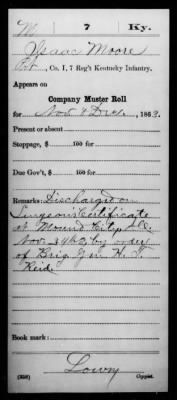 M 7 Ky.
Isaac Moore
Pvt, Co. I, 7 Reg't Kentucky Infantry.
Appears on
Company Muster Roll
for Nov & Dec, 1863.
Present or absent
Stoppage, $ 100 for
Due Gov't, $ 100 for
Remarks: Discharged on
Surgeon's Certificate
at Mound City Ill.
Nov. 24/63, by order
of Brig Gen H. T.
Reid.
Book mark:
Lowry
(358) Copyist.